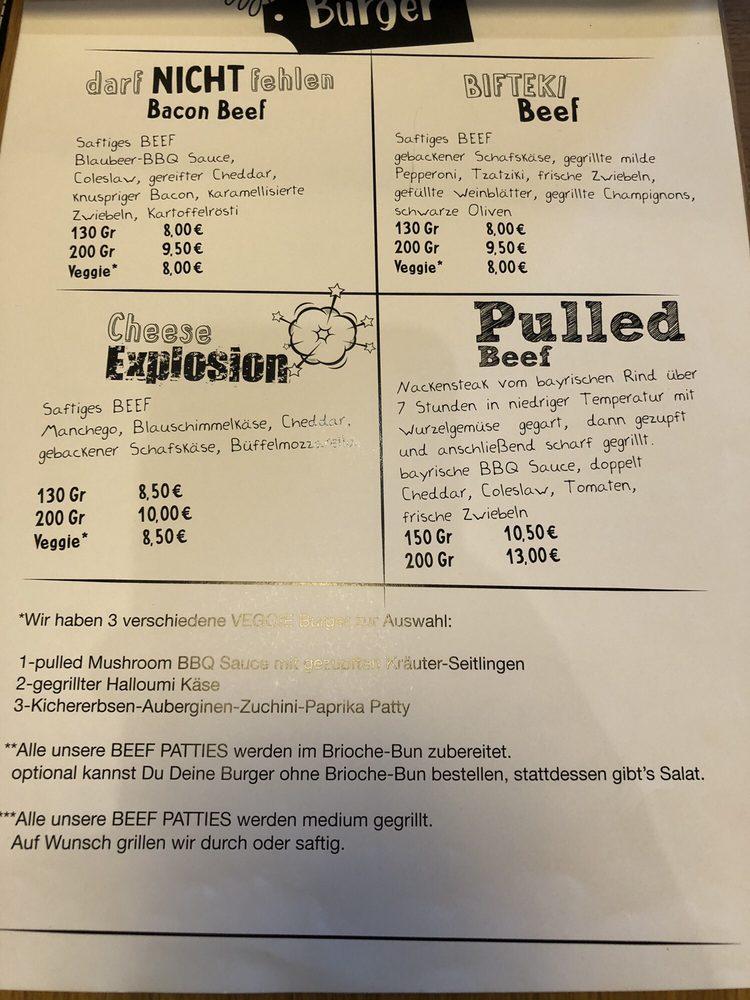 Burger
darf NICHT fehlen
Bacon Beef
Saftiges BEEF
Blaubeer-BBQ Sauce,
Coleslaw, gereifter Cheddar,
knuspriger Bacon, karamellisierte
Zwiebeln, Kartoffelrösti
130 Gr 8,00€
200 Gr 9,50€
Veggie* 8,00€
BIFTEKI
Beef
Saftiges BEEF
gebackener Schafskäse, gegrillte milde
Pepperoni, Tzatziki, frische Zwiebeln,
gefüllte Weinblätter, gegrillte Champignons,
schwarze Oliven
130 Gr 8,00€
200 Gr 9,50€
Veggie* 8,00€
Cheese
Explosion
Saftiges BEEF
Manchego, Blauschimmelkäse, Cheddar,
gebackener Schafskäse, Büffelmozzarella
130 Gr 8,50€
200 Gr 10,00€
Veggie* 8,50€
Pulled
Beef
Nackensteak vom bayrischen Rind über
7 Stunden in niedriger Temperatur mit
Wurzelgemüse gegart, dann gezupft
und anschließend scharf gegrillt.
bayrische BBQ Sauce, doppelt
Cheddar, Coleslaw, Tomaten,
frische Zwiebeln
150 Gr 10,50€
200 Gr 13,00€
*Wir haben 3 verschiedene VEGGIE Burger zur Auswahl:
1-pulled Mushroom BBQ Sauce mit gezupften Kräuter-Seitlingen
2-gegrillter Halloumi Käse
3-Kichererbsen-Auberginen-Zuchini-Paprika Patty
**Alle unsere BEEF PATTIES werden im Brioche-Bun zubereitet.
optional kannst Du Deine Burger ohne Brioche-Bun bestellen, stattdessen gibt's Salat.
***Alle unsere BEEF PATTIES werden medium gegrillt.
Auf Wunsch grillen wir durch oder saftig.